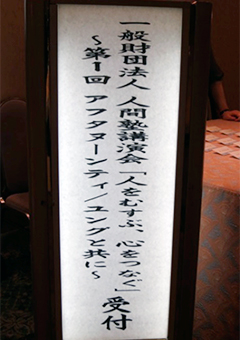 一般財団法人 人間塾講演会 「人をむすぶ、心をつなぐ」
～第1回 アフタヌーンティ/ユングと共に～
受付